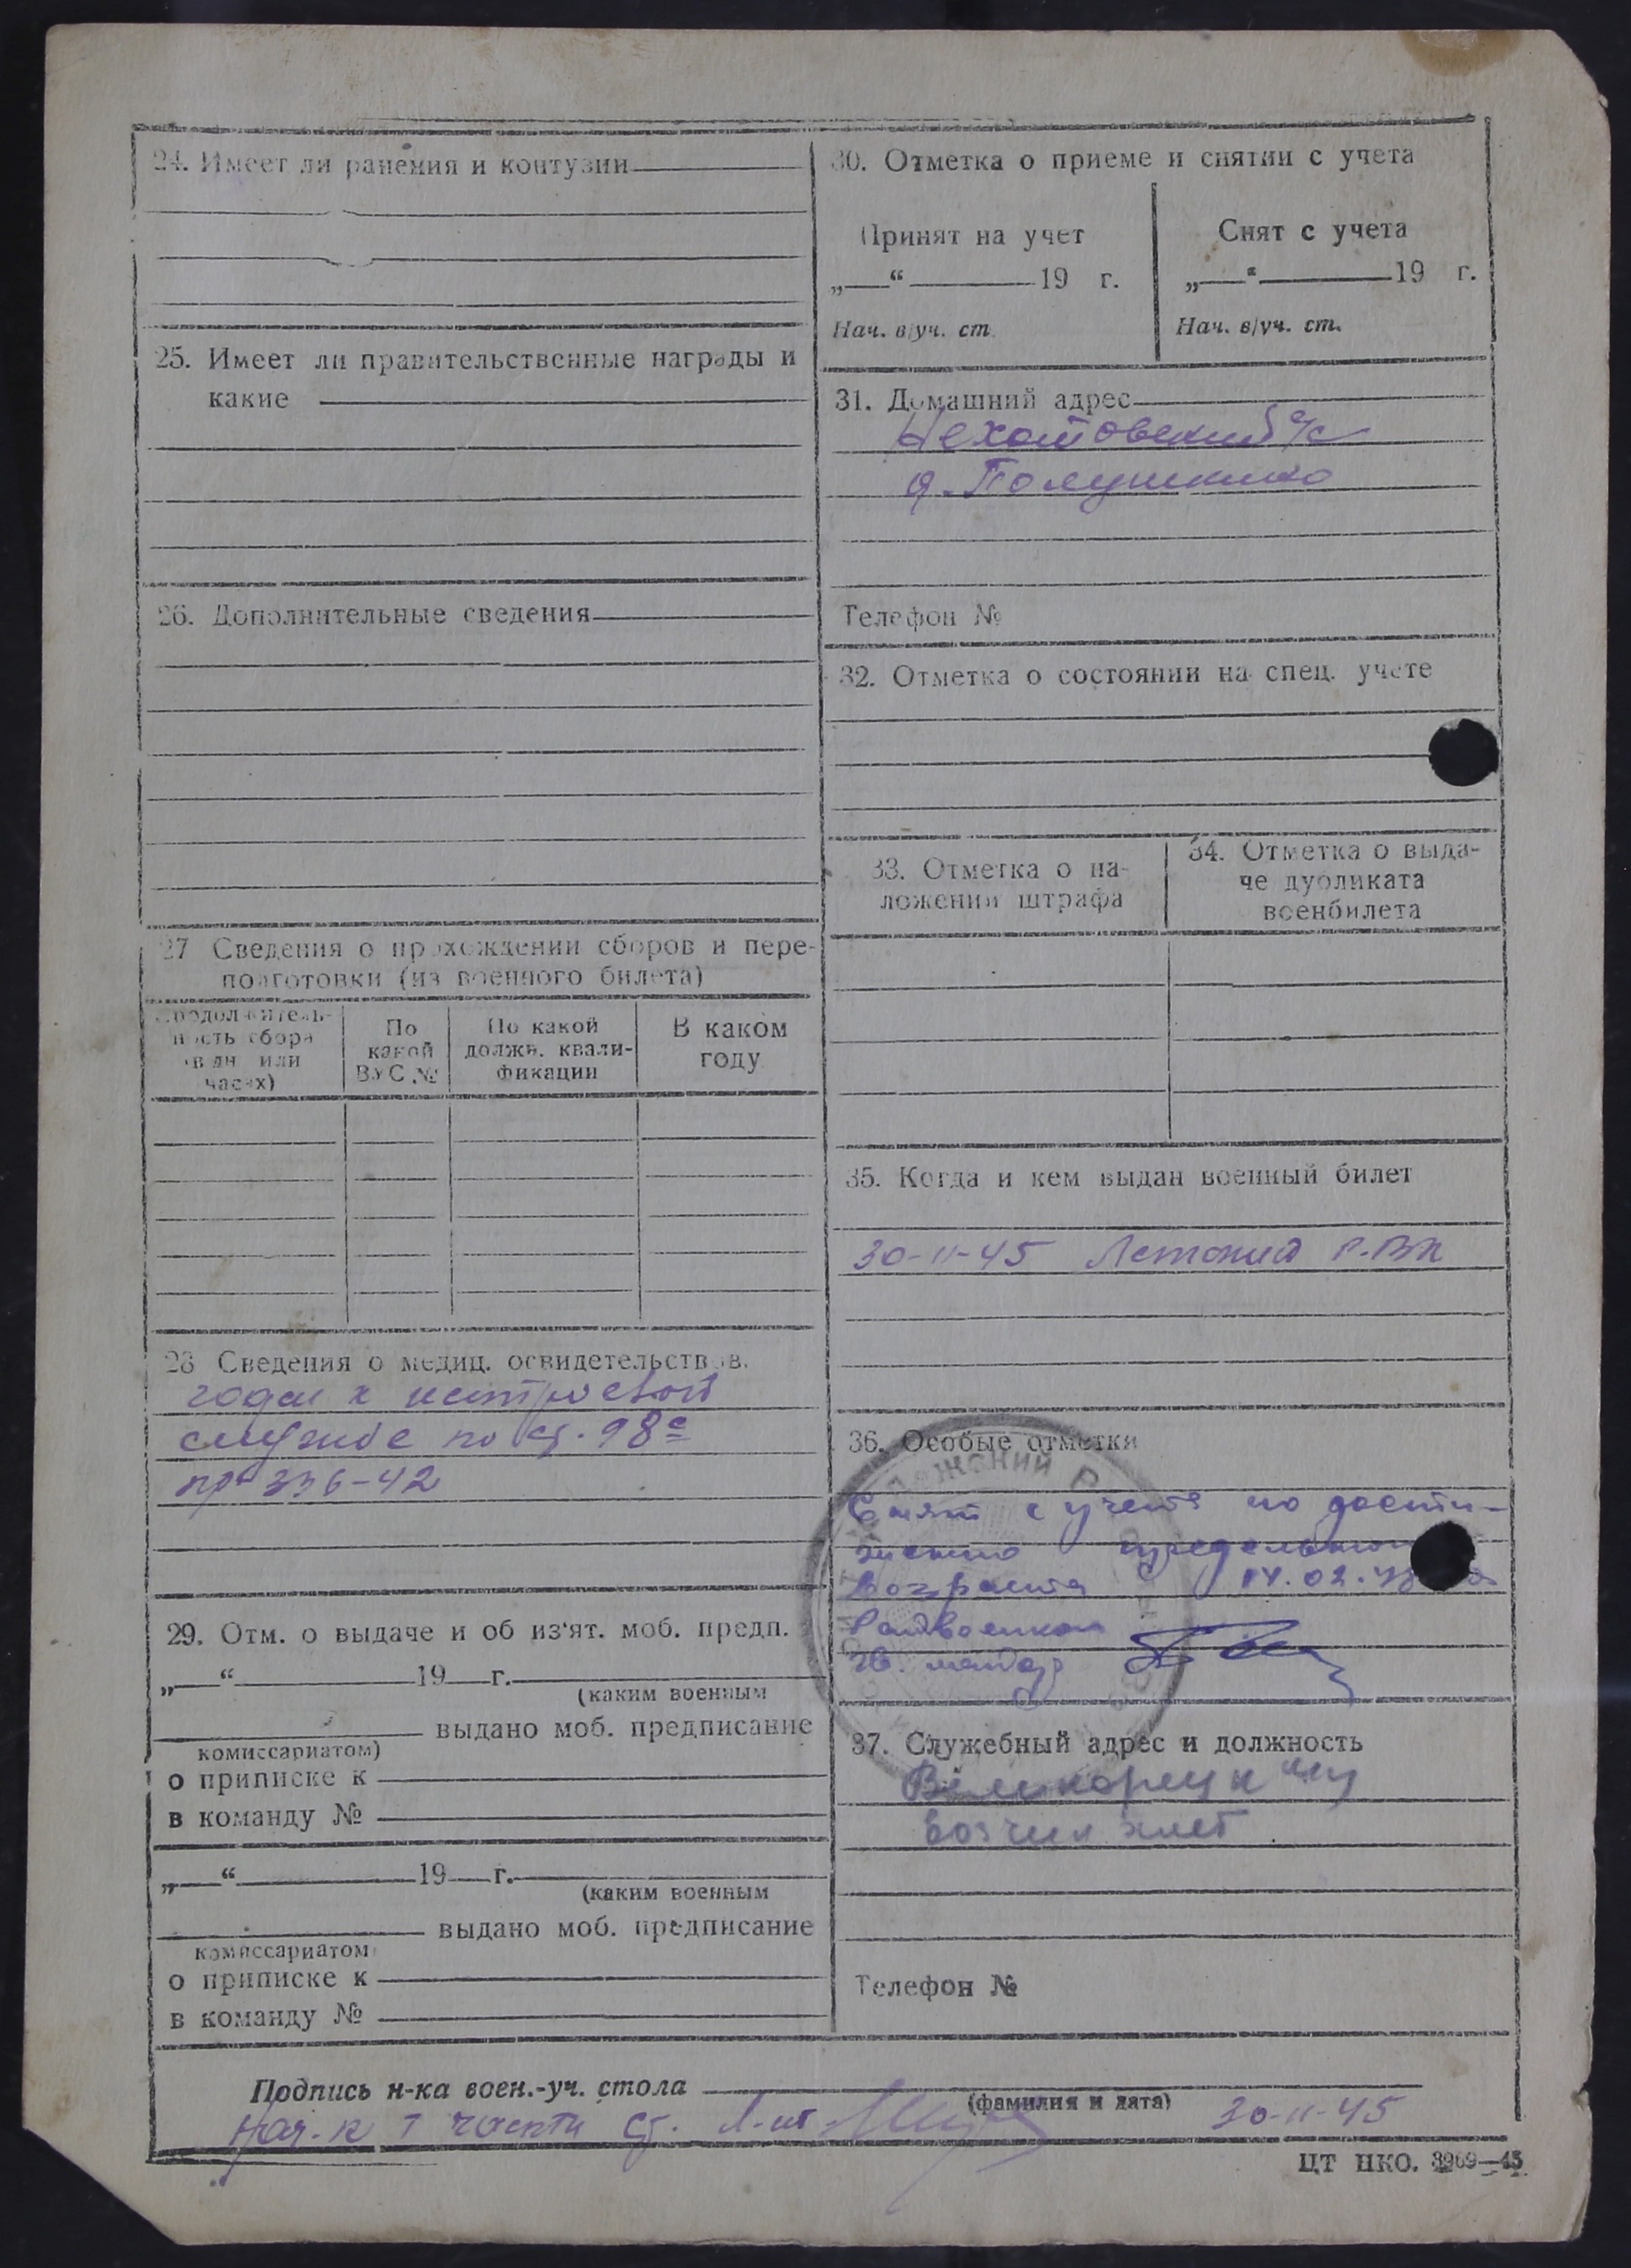 24. Имеет ли ранения и контузии
25. Имеет ли правительственные награды и
какие
26. Дополнительные сведения
27 Сведения о прохождении сборов и пере-
подготовки (из военного билета)
Продолжитель-
ность сбора
(в дн. или
часах)
По
какой
ВУС №
По какой
должн. квали-
фикации
В каком
году
28 Сведения о медиц. освидетельствов.
годен к нестроевой
службе по ст. 98с
пр 336-42
29. Отм. о выдаче и об из‘ят. моб. предп.
„ “ 19 г.
(каким военным
выдано моб. предписание
комиссариатом)
о приписке к
в команду №
„ “ 19 г.
(каким военным
выдано моб. предписание
комиссариатом
о приписке к
в команду №
30. Отметка о приеме и снятии с учета
Принят на учет
„ “ 19 г.
Нач. в/уч. ст.
Снят с учета
„ “ 19 г.
Нач. в/уч. ст.
31. Домашний адрес
с/с
д. Полушкино
Телефон №
32. Отметка о состоянии на спец. учете
33. Отметка о на-
ложении штрафа
34. Отметка о выда-
че дубликата
военбилета
35. Когда и кем выдан военный билет
30-11-45 Летский Р.ВК
36. Особые отметки
Снят с учета по дости-
жению предельного
возраста 14.02.48
Райвоенком
37. Служебный адрес и должность
Великорецк
возчик
Телефон №
Подпись н-ка воен.-уч. стола
(фамилия и дата)
Нач-к 1 части ст. л-нт 30-11-45
ЦТ НКО. 3969—45